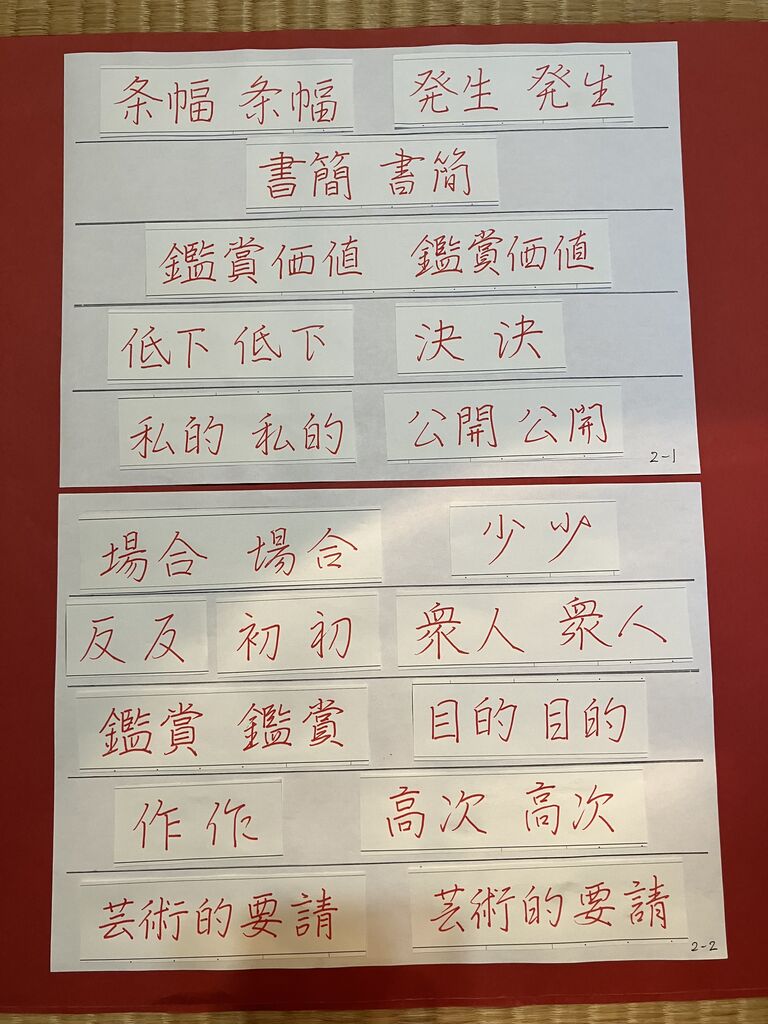 条幅 条幅 発生 発生
書簡 書簡
鑑賞価値 鑑賞価値
低下 低下 決 決
私的 私的 公開 公開
2-1
場合 場合 少 少
反 反 初 初 衆人 衆人
鑑賞 鑑賞 目的 目的
作 作 高次 高次
芸術的要請 芸術的要請
2-2